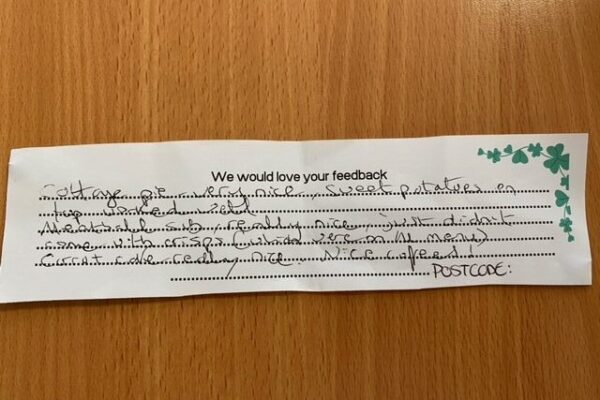 We would love your feedback
Cottage pie very nice, sweet potatoes on
top worked well
Meatball sub, really nice, just didn't
come with crisps (which were on the menu)
Carrot cake really nice. Nice coffee!
POSTCODE: